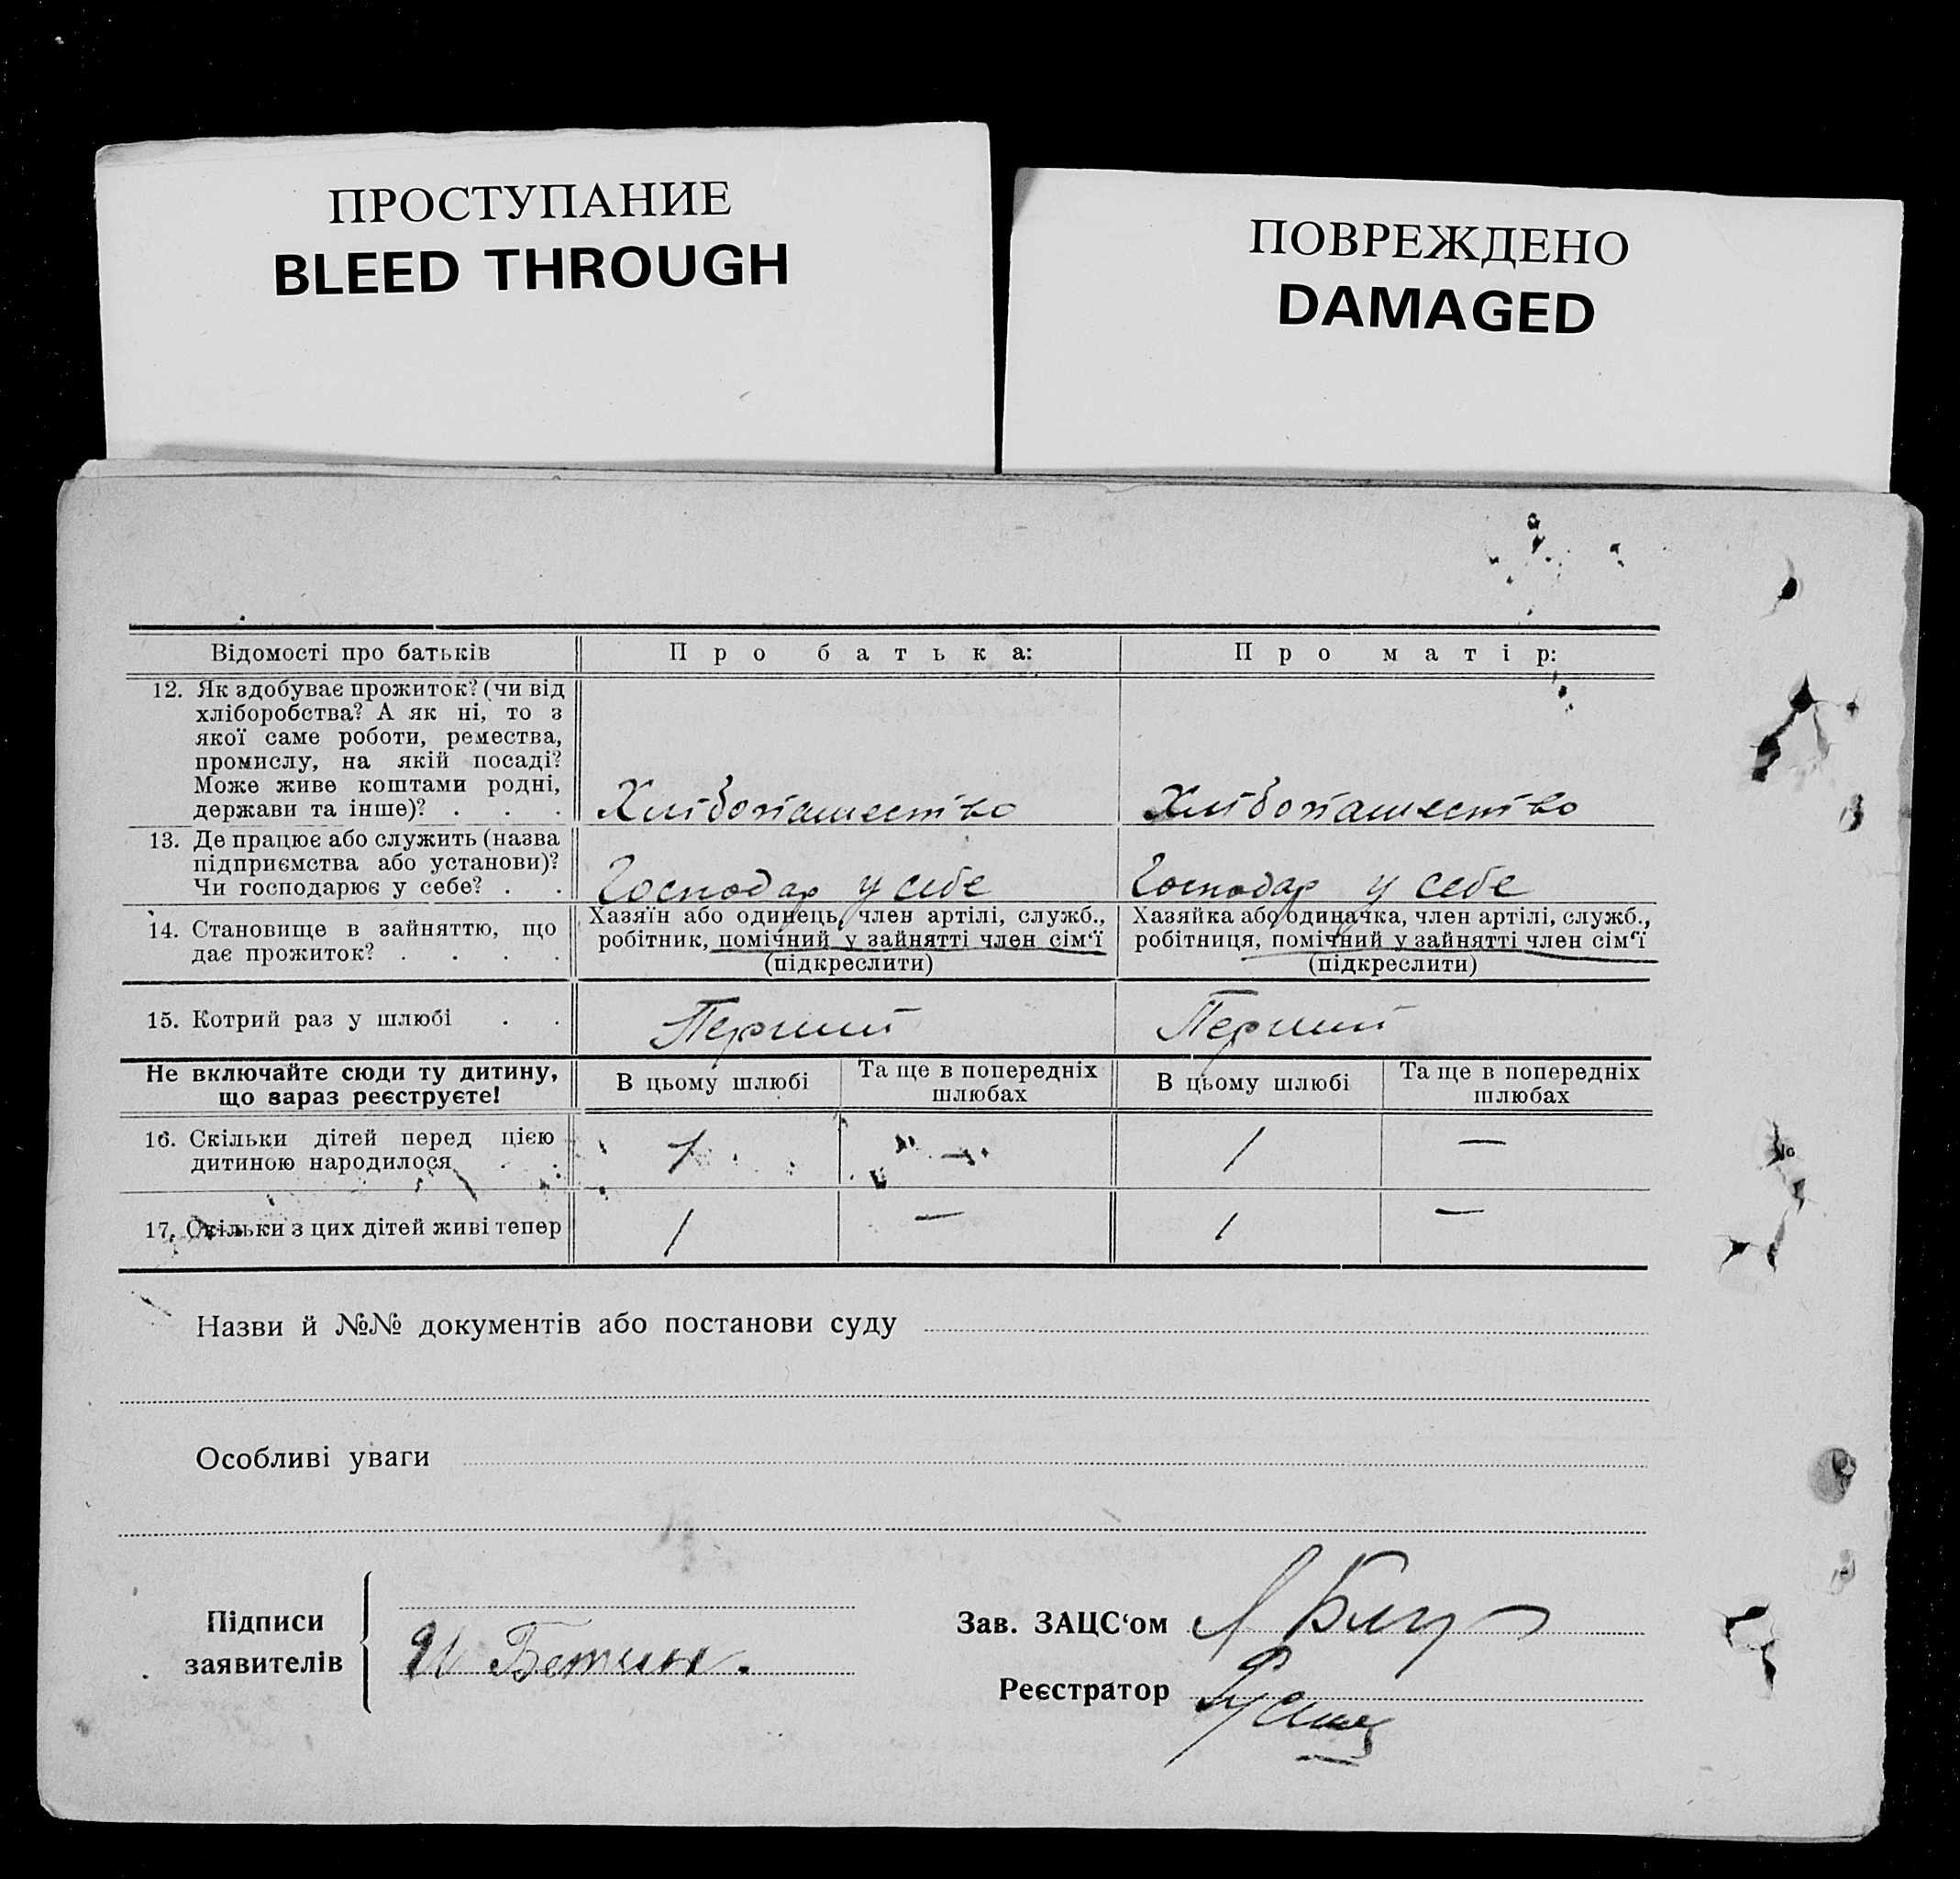 ПРОСТУПАНИЕ
BLEED THROUGH
ПОВРЕЖДЕНО
DAMAGED
Відомості про батьків
Про батька:
Про матір:
12. Як здобуває прожиток? (чи від
хліборобства? А як ні, то з
якої саме роботи, ремества,
промислу, на якій посаді?
Може живе коштами родні,
держави та інше)? . . .
Хлібопашество
Хлібопашество
13. Де працює або служить (назва
підприємства або установи)?
Чи господарює у себе? . .
Господар у себе
Господар у себе
14. Становище в зайняттю, що
дає прожиток? . . . .
Хазяїн або одинець, член артілі, служб.,
робітник, помічний у зайнятті член сім‘ї
(підкреслити)
Хазяйка або одиначка, член артілі, служб.,
робітниця, помічний у зайнятті член сім‘ї
(підкреслити)
15. Котрий раз у шлюбі . .
Перший
Перший
Не включайте сюди ту дитину,
що зараз реєструєте!
В цьому шлюбі
Та ще в попередніх
шлюбах
В цьому шлюбі
Та ще в попередніх
шлюбах
16. Скільки дітей перед цією
дитиною народилося . .
1
—
1
—
17. Скільки з цих дітей живі тепер
1
—
1
—
Назви й №№ документів або постанови суду
Особливі уваги
Підписи
заявителів
Зав. ЗАЦС‘ом
Реєстратор